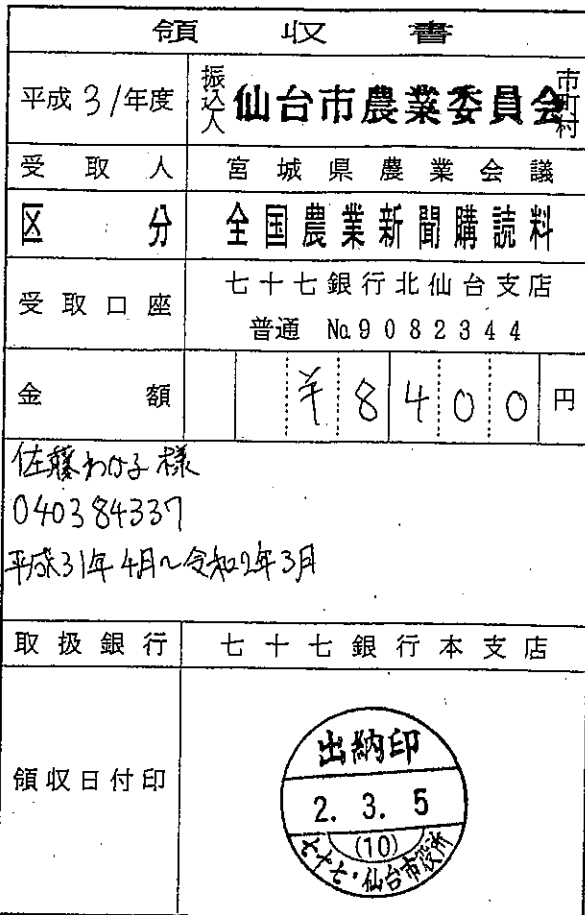 領収書
平成31年度 振込人 仙台市農業委員会 市町村
受取人 宮城県農業会議
区分 全国農業新聞購読料
受取口座 七十七銀行北仙台支店
普通 No.9082344
金額 ¥8400円
佐藤わか子様
040384337
平成31年4月~令和2年3月
取扱銀行 七十七銀行本支店
領収日付印
出納印
2. 3. 5
(10)
七十七・仙台市役所